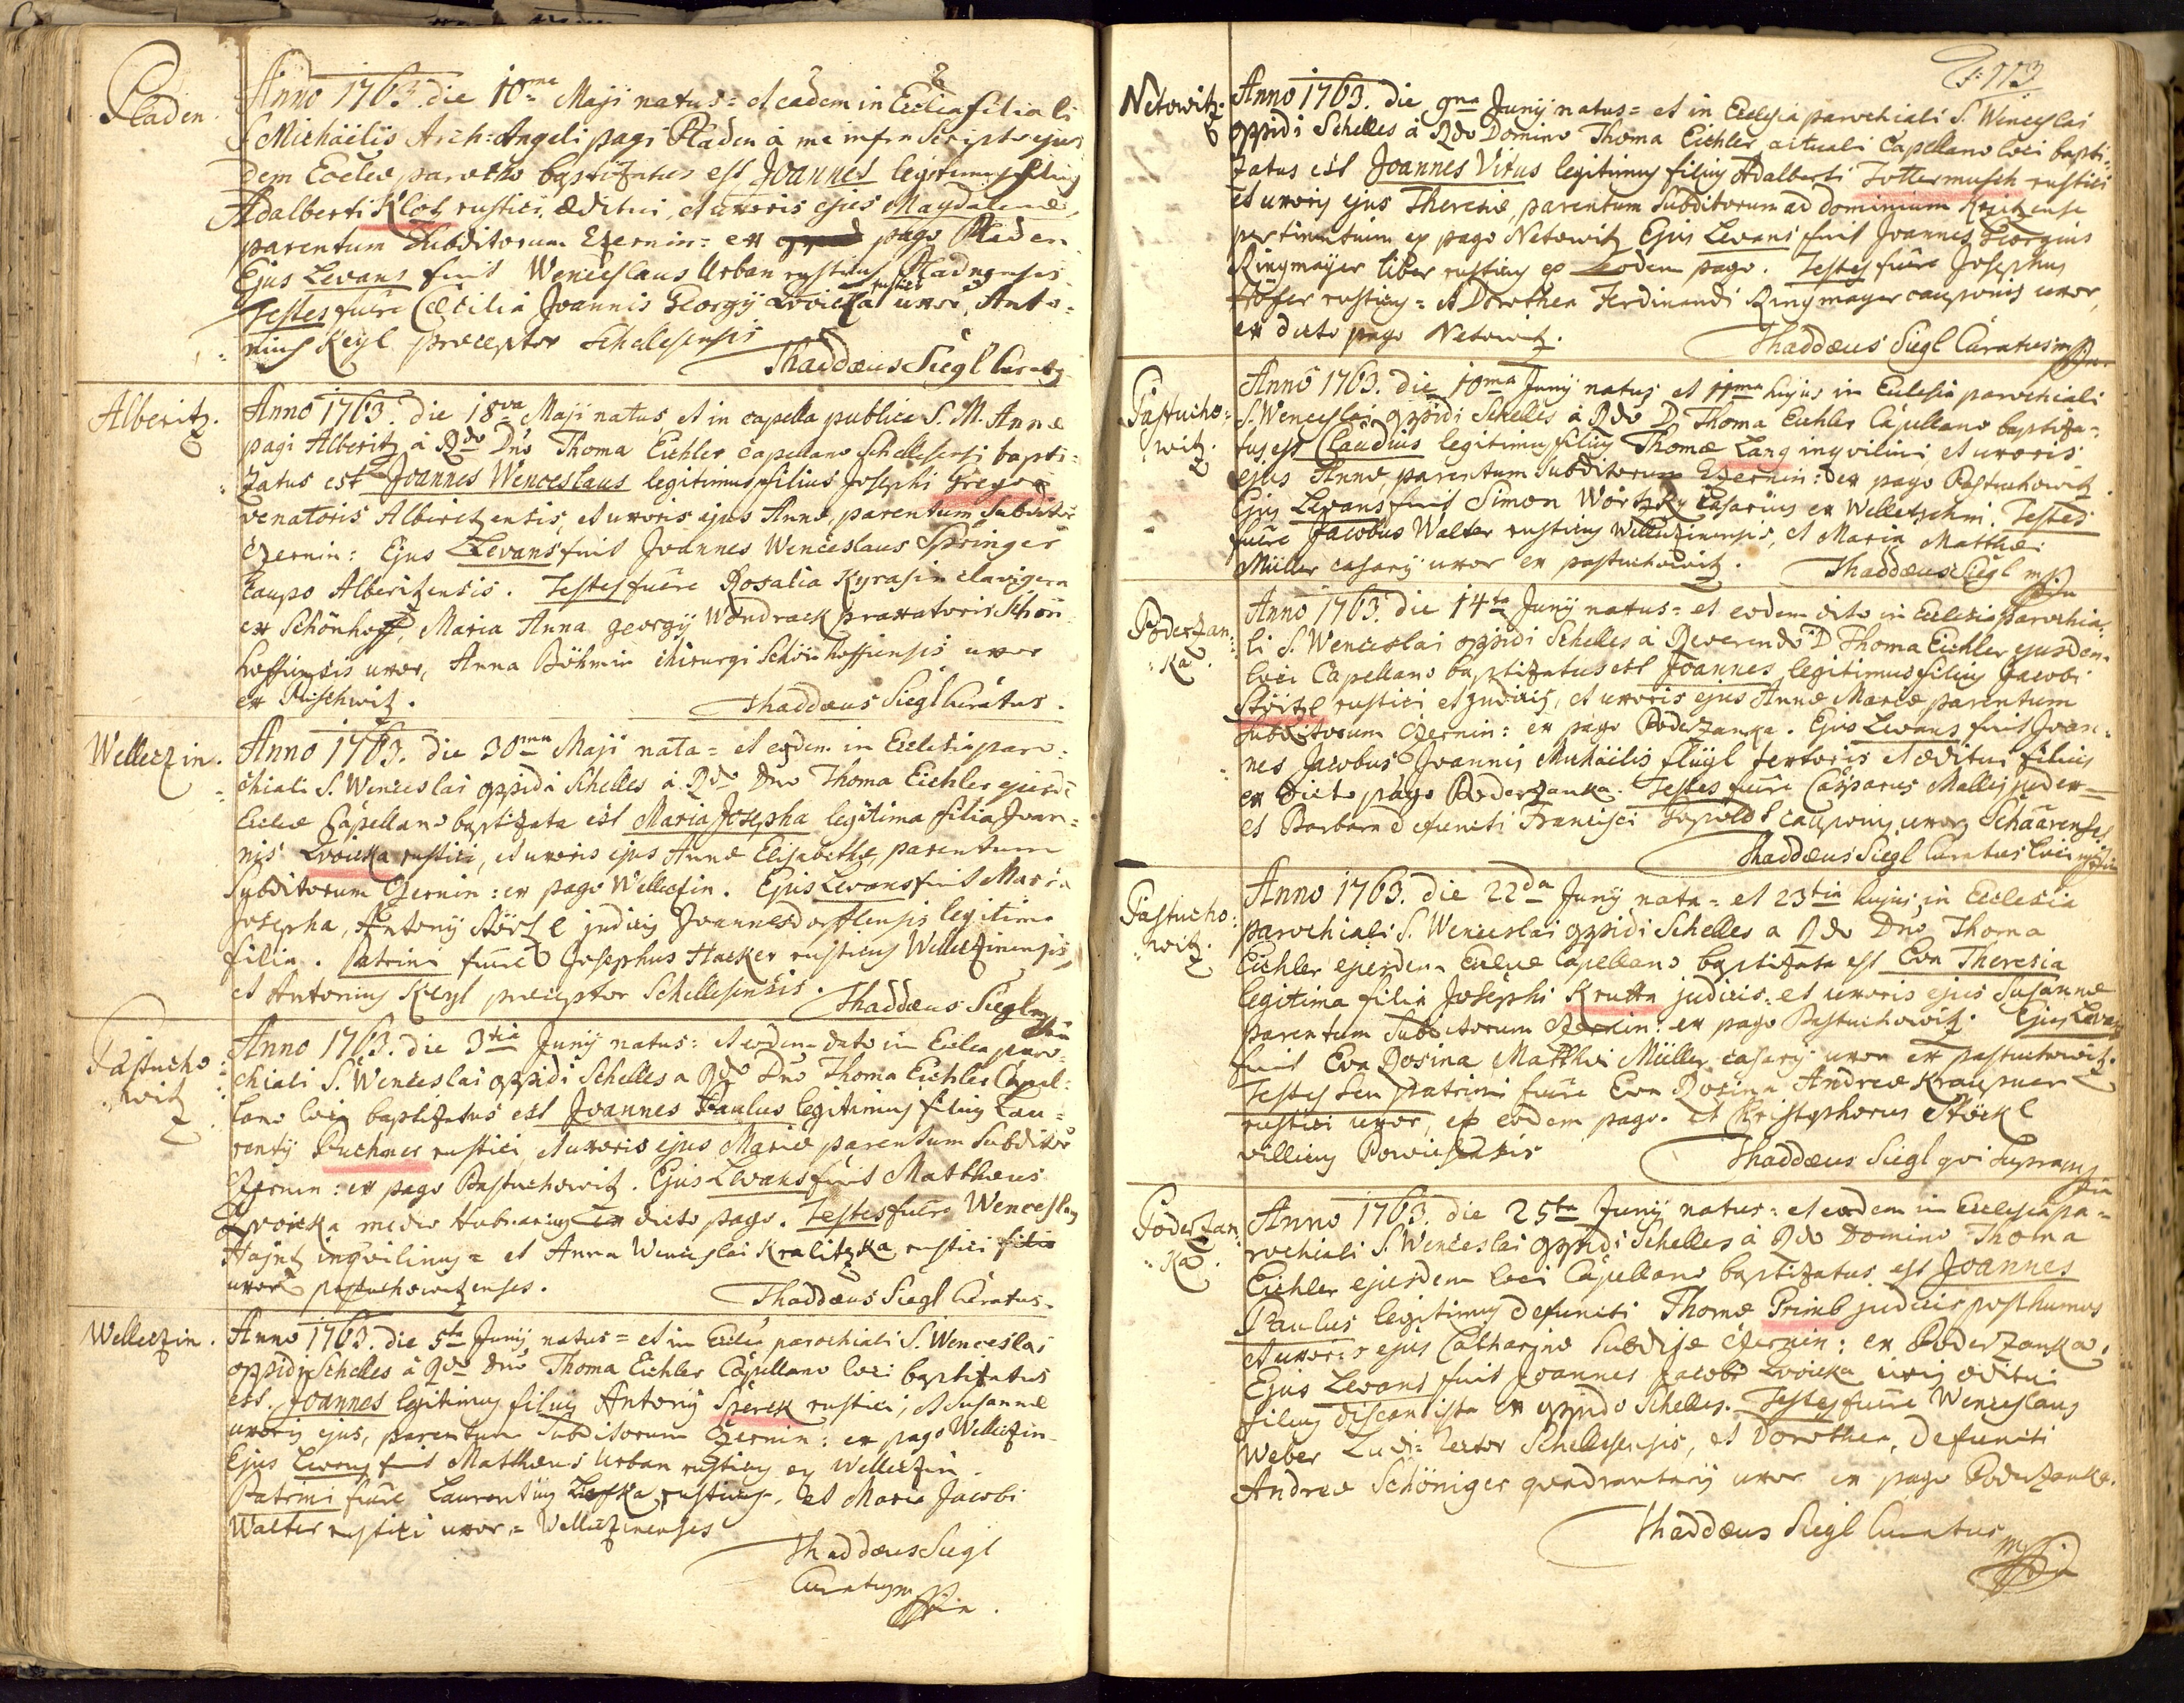 Pladen.
Anno 1763. die 10ma Maji natus= et eadem in Ecclia filiali
S. Michaëlis Arch=Angeli pagi Pladen à me infra scripto ejus
dem Ecclae parocho baptizatus est Joannes legitimus filius
Adalberti Klotz rustici, aeditui, et uxoris ejus Magdalenae,
parentum Subditorum Czernin= ex pago Pladen
Ejus Levans fuit Wenceslaus Urban rusticus Pladnensis
Testes fuêre Caecilia Joannis Georgÿ Lwicka rustici uxor, Anto=
nius Keyl praeceptor Schellesensis
Thaddaeus Siegl Curatus
Alberitz.
Anno 1763. die 18va Maji natus, et in capella publica S. M. Annae
pagi Alberitz à Rdo Dno Thoma Eichler capellano Schellesensi bapti=
zatus est Joannes Wenceslaus legitimus filius Josephi Gregor
venatoris Alberitzensis, et uxoris ejus Annae, parentum Subditor
Czernin: Ejus Levans fuit Joannes Wenceslaus Springer
Caupo Alberitzensis. Testes fuêre Rosalia Kyrasin clavigera
ex Schönhoff, Maria Anna georgÿ Wondrack braxatoris Schön
hoffiensis uxor, Anna Böhmin chirurgi Schönhoffiensis uxor
ex
Thaddaeus Siegl Curatus.
Welletzin.
Anno 1763. die 30ma Maji nata= et eadem in Ecclesia paro=
chiali S. Wenceslai oppidi Schelles à Rdo Dno Thoma Eichler ejusde
Ecclae Capellano baptizata est Maria Josepha legitima filia Joan=
nis Lwicka rustici, et uxoris ejus Annae Elisabethae, parentum
Subditorum Czernin: ex pago Welletzin. Ejus Levans fuit Maria
Josepha, Antonÿ Störtzl judicis Joannesdorffensis legitima
filia. Patrini fuêre Josephus Hacker rusticus Welletzinensis,
et Antonius Keyl praeceptor Schellesensis.
Thaddaeus Siegl mp
Pastucho
witz
Anno 1763. die 3tia Junÿ natus: et eodem dato in Ecclia paro=
chiali S. Wenceslai oppidi Schelles a Rdo Dno Thoma Eichler Capel=
lano loci baptizatus est Joannes Paulus legitimus filius Lau=
rentÿ Puchner rustici, et uxoris ejus Mariae parentum Subditor
Czernin: ex pago Pastuchowitz. Ejus Levans fuit Matthaeus
Lwicka medio Hubnarius ex dicto pago. Testes fuêre Wenceslaus
Haÿntz inqvilinus= et Anna Wenceslai Kralitzka rustici
uxor pastuchowitzenses.
Thaddaeus Siegl Curatus.
Welletzin.
Anno 1763. die 5ta Junÿ natus= et in Ecclia parochiali S. Wenceslai
oppidi Schelles à Rdo Dno Thoma Eichler Capellano loci baptizatus
est. Joannes legitimus filius Antonÿ Sperck rustici, et Susannae
uxoris ejus, parentum Subditorum Czernin: ex pago Welletzin
Ejus Levans fuit Matthaeus Urban rusticus ex Welletzin.
Patrini fuêre Laurentius rusticus. et Maria Jacobi
Walter rustici uxor= Welletzinenses
Thaddaeus Siegl
Curatus mp
F: 113
Netowitz.
Anno 1763. die 9na Junÿ natus= et in Ecclesia parochiali S. Wenceslai
oppidi Schelles à Rdo Domino Thoma Eichler actuali Capellano loci bapti=
zatus est Joannes Vitus legitimus filius Adalberti Tottermusch rustici
et uxoris ejus Theresiae, parentum Subditorum ad dominium
pertinentium ex pago Netowitz Ejus Levans fuit Joannes Georgius
Ringmaÿer liber rusticus ex Eodem pago. Testes fuêre Josephus
Hofer rusticus= et Dorothea Ferdinandi Ringmayer cauponis uxor
ex dicto pago Netowitz.
Thaddaeus Siegl Curatus mp
Pastucho=
witz.
Anno 1763. die 10ma Junÿ natus et 11ma hujus in Ecclesia parochiali
S. Wenceslai oppidi Schelles à Rdo D. Thoma Eichler Capellano baptiza=
tus est Claudius legitimus filius Thomae Lang inqvilini et uxoris
ejus Annae, parentum Subditorum Czernin: ex pago Pastuchowitz.
Ejus Levans fuit Simon Wortzky Casarius ex Welletschin. Testes
fuêre Jacobus Walter rusticus Welletzinensis, et Maria Matthaei
Müller casarÿ uxor ex pastuchowitz.
Thaddaeus Siegl mp
Poderzan=
ka.
Anno 1763. die 14ta Junÿ natus= et eodem dito in Ecclesia parochia=
li S. Wenceslai oppidi Schelles à Reverendo D Thoma Eichler ejusdem
loci Capellano baptizatus est Joannes legitimus filius Jacobi
Störtzl rustici et judicis, et uxoris ejus Annae Mariae parentum
Subditorum Czernin: ex pago Poderzanka. Ejus Levans fuit Joan=
nes Jacobus Joannis Michaëlis flügl textoris et aeditui filius
ex dicto pago Poderzanka. Testes fuêre Casparus
et Barbara defuncti Francisci Lepoldt cauponis uxor Schaarenses
Thaddaeus Siegl Curatus loci mp
Pastucho:
witz.
Anno 1763. die 22da Junÿ nata= et 23tia hujus in Ecclesia
parochiali S. Wenceslai oppidi Schelles a Rdo Dno Thoma
Eichler ejusdem Ecclae Capellano baptizata est Eva Theresia
legitima filia Josephi Krutta judicis= et uxoris ejus Susannae
parentum Subditorum Czernin: ex pago Pastuchowitz. Ejus Levans
fuit Eva Rosina Matthaei Müller casarÿ uxor ex pastuchowitz.
Testes seu patrini fuêre Eva Rosina Andreae Kraupner
rustici uxor, ex eodem pago. et Christophorus Stöckl
villicus
Thaddaeus Siegl qvi supra mp
Poderzan
ka.
Anno 1763. die 25ta Junÿ natus= et eodem in Ecclesia pa=
rochiali S. Wenceslai oppidi Schelles à Rdo Domino Thoma
Eichler ejusdem loci Capellano baptizatus est Joannes
Paulus legitimus defuncti Thomae Primb judicis posthumus
et uxoris ejus Catharinae Subditae Czernin: ex Poderzanka.
Ejus Levans fuit Joannes Jacobi Lwicka civis aeditui
filius discantista ex oppido Schelles. Testes fuêre Wenceslaus
Weber Ludi= rector Schellesensis, et Dorothea, defuncti
Andreae Schöniger qvadrantarÿ uxor ex pago Poderzanka.
Thaddaeus Siegl Curatus
mp